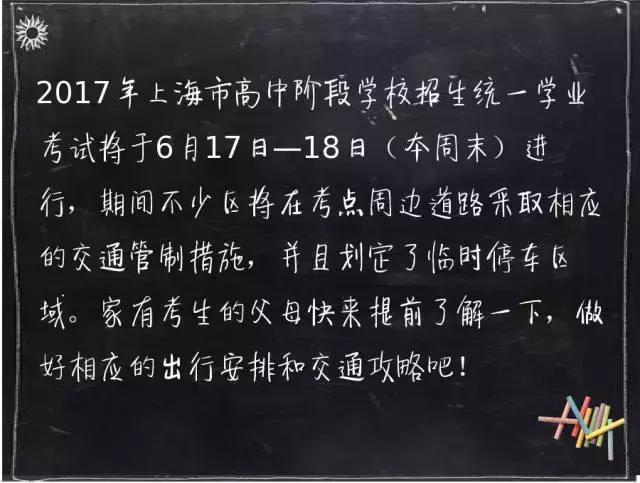 2017年上海市高中阶段学校招生统一学业
考试将于6月17日—18日（本周末）进
行，期间不少区将在考点周边道路采取相应
的交通管制措施，并且划定了临时停车区
域。家有考生的父母快来提前了解一下，做
好相应的出行安排和交通攻略吧！